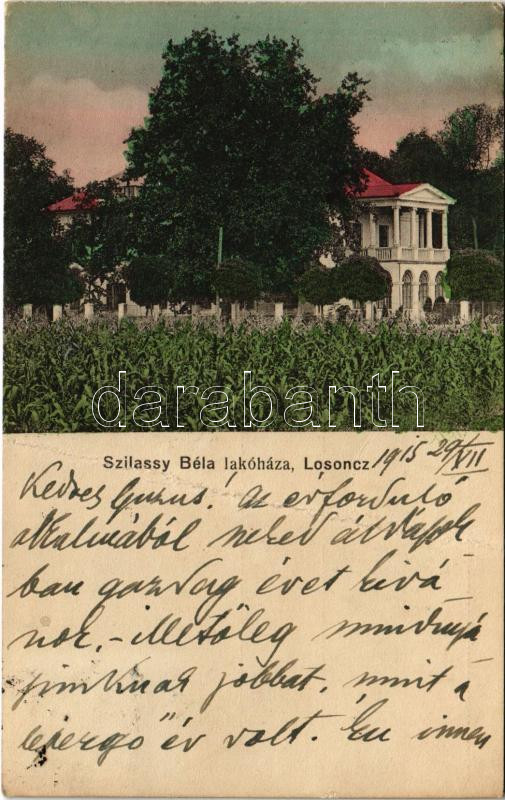 darabanth
Szilassy Béla lakóháza, Losoncz
1915 29/XII
Kedves Guzus! Az évforduló
alkalmából neked áldások
ban gazdag évet kivá
nok, - illetőleg mindnyá
junknak jobbat, mint a
lepergő év volt. Én innen